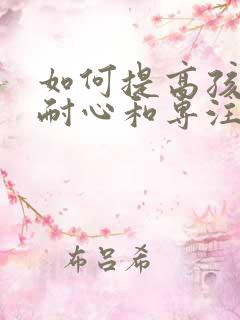 如何提高孩
耐心和专注
布吕希